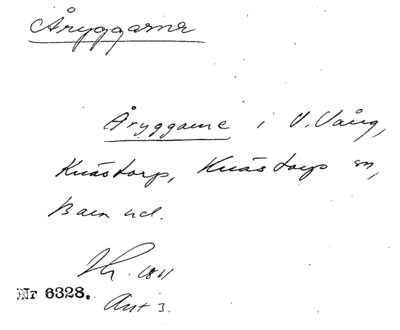 Åryggarne
Åryggarne i V. Vång,
Knästorp, Knästorp sn,
Bara hd.
1811
Nr 6328.
Ant 3.